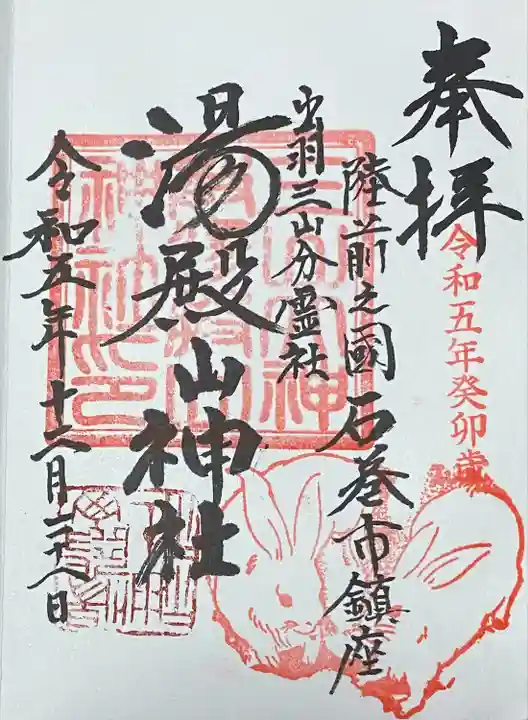 奉拝
令和五年癸卯歳
陸前之國石巻市鎮座
出羽三山分霊社
湯殿山神社
令和五年十二月二十八日